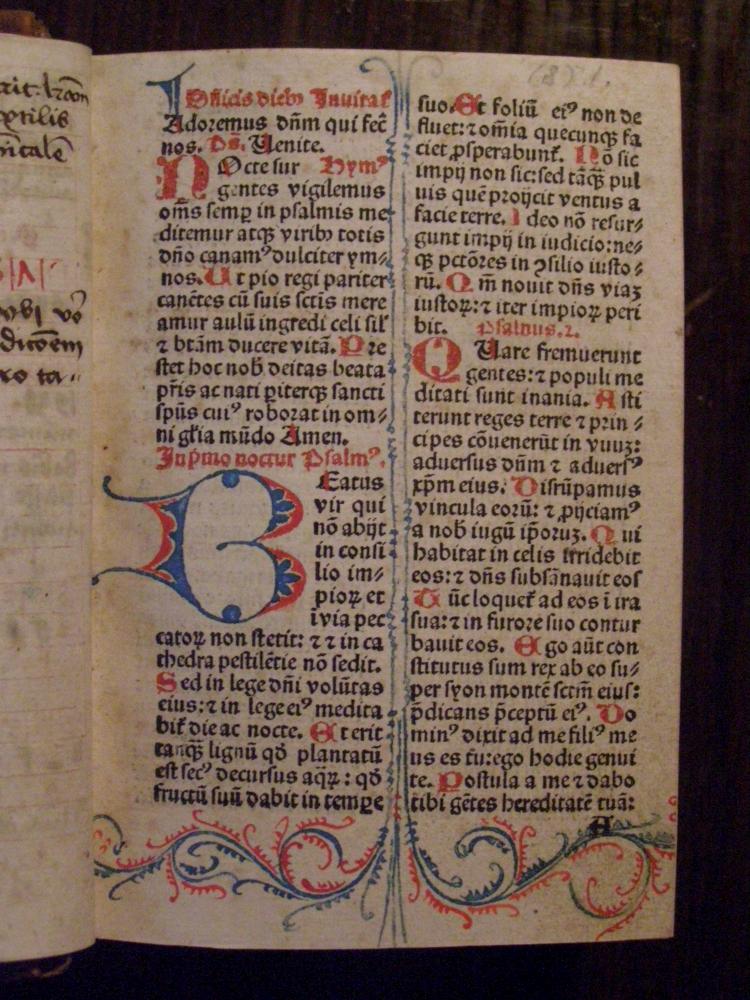 Dñicis dieb⁹ Inuitat̃
Adoremus dñm qui fec̃
nos. Ps. Uenite.
NOcte sur Hym⁹
gentes vigilemus
om̃s semꝑ in psalmis me
ditemur atqꝫ virib⁹ totis
dño canam⁹ dulciter ym⸗
nos. Ut pio regi pariter
canẽtes cũ suis sctĩs mere
amur aulã ingredi celi sil̃
⁊ btãm ducere vitã. Pre
stet hoc nob̃ deitas beata
pr̃is ac nati ꝑiterqꝫ sancti
spũs cui⁹ roborat in om⸗
ni gl̃ia mũdo Amen.
In pmo noctur Psalm⁹.
BEatus
vir qui
nõ abijt
in consi
lio im⸗
pioꝝ et
ĩ via pec
catoꝝ non stetit: ⁊ ⁊ in ca
thedra pestilẽtie nõ sedit.
Sed in lege dñi volũtas
eius: ⁊ in lege ei⁹ medita
bit̃ die ac nocte. Et erit
tanqꝫ̃ lignũ qd̃ plantatũ
est sec⁹ decursus aqꝝ̃: qd̃
fructũ suũ dabit in temꝑe
suo. Et foliũ ei⁹ non de
fluet: ⁊ om̃ia quecunqꝫ fa
ciet ꝓsperabunt̃. Nõ sic
impij non sic: sed tãqꝫ̃ pul
uis quẽ proijcit ventus a
facie terre. Ideo nõ resur⸗
gunt impij in iudicio: ne⸗
qꝫ pctõres in ꝯsilio iusto⸗
rũ. Qm̃ nouit dñs viaꝫ
iustoꝝ: ⁊ iter impioꝝ peri
bit. Psalmus .2.
QUare fremuerunt
gentes: ⁊ populi me
ditati sunt inania. Asti
terunt reges terre ⁊ prin⸗
cipes cõuenerũt in vnuꝫ:
aduersus dñm ⁊ aduers⁹
xp̃m eius. Disrũpamus
vincula eorũ: ⁊ ꝓijciam⁹
a nob̃ iugũ ip̃oruꝫ. Qui
habitat in celis irridebit
eos: ⁊ dñs subsãnauit eos
Tũc loquet̃ ad eos ĩ ira
sua: ⁊ in furore suo contur
bauit eos. Ego aũt con
stitutus sum rex ab eo su⸗
per syon montẽ sctm̃ eius:
p̃dicans p̃ceptũ ei⁹. Do
min⁹ dixit ad me fili⁹ me
us es tu: ego hodie genui
te. Postula a me ⁊ dabo
tibi gẽtes hereditatẽ tuã: